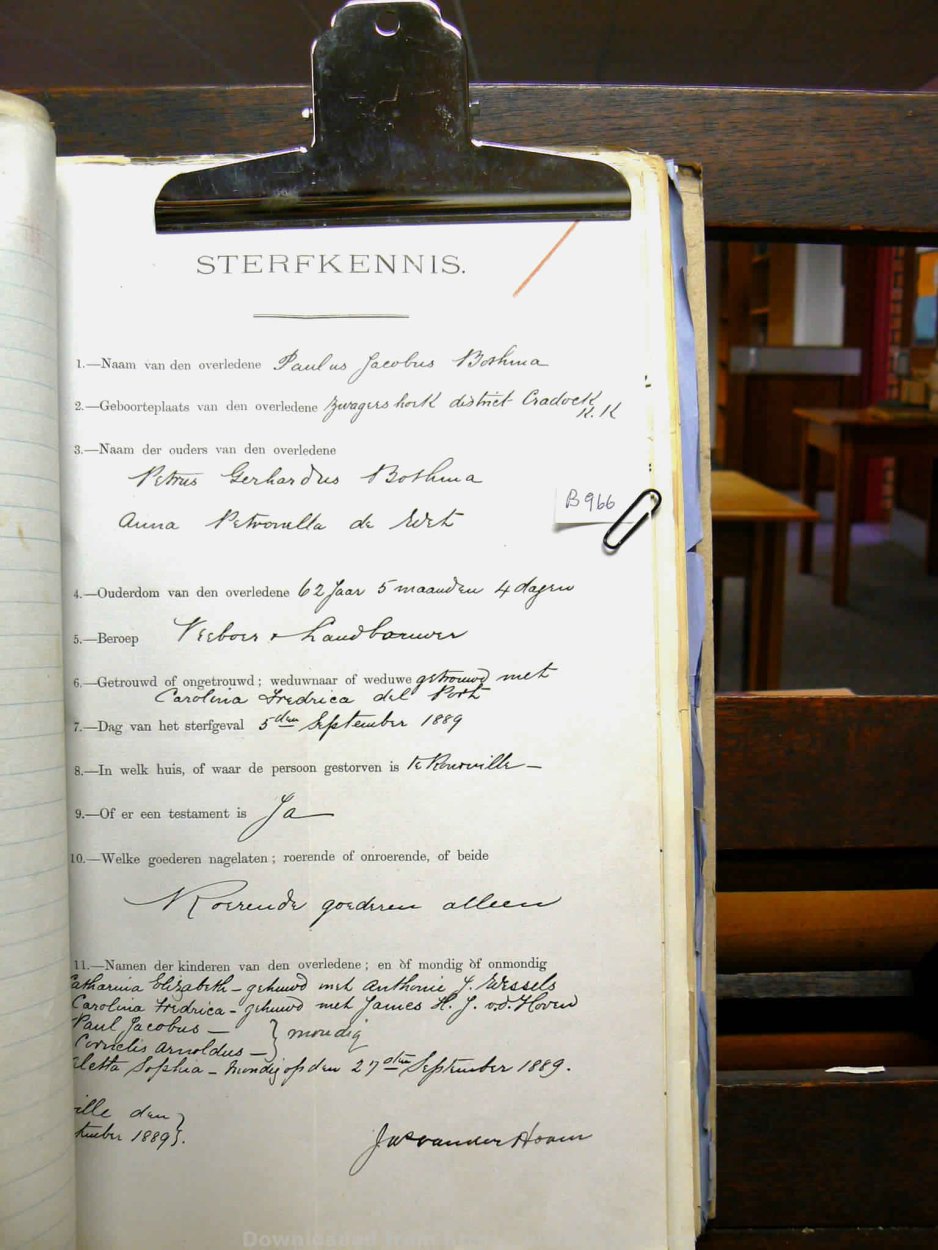 STERFKENNIS.
1.—Naam van den overledene Paulus Jacobus Bothma
2.—Geboorteplaats van den overledene Zwagershoek district Cradock
K. K
3.—Naam der ouders van den overledene
Petrus Gerhardus Bothma
B966
Anna Petronella de Wet
4.—Ouderdom van den overledene 62 Jaar 5 maanden 4 dagen
5.—Beroep Veeboer & Landbouwer
6.—Getrouwd of ongetrouwd; weduwnaar of weduwe getrouwd met
Carolina Fredrica del Port
7.—Dag van het sterfgeval 5den September 1889
8.—In welk huis, of waar de persoon gestorven is te Rouxville—
9.—Of er een testament is Ja—
10.—Welke goederen nagelaten; roerende of onroerende, of beide
Roerende goederen alleen
11.—Namen der kinderen van den overledene; en òf mondig òf onmondig
Catharina Elizabeth – gehuwd met Anthonie J. Wessels
Carolina Fredrica – gehuwd met James H. J. v.d. Hoven
Paul Jacobus — } mondig
Cornelis Arnoldus — }
Aletta Sophia – Mondig op den 27sten September 1889.
ville den }
tember 1889 }.
Downloaded from